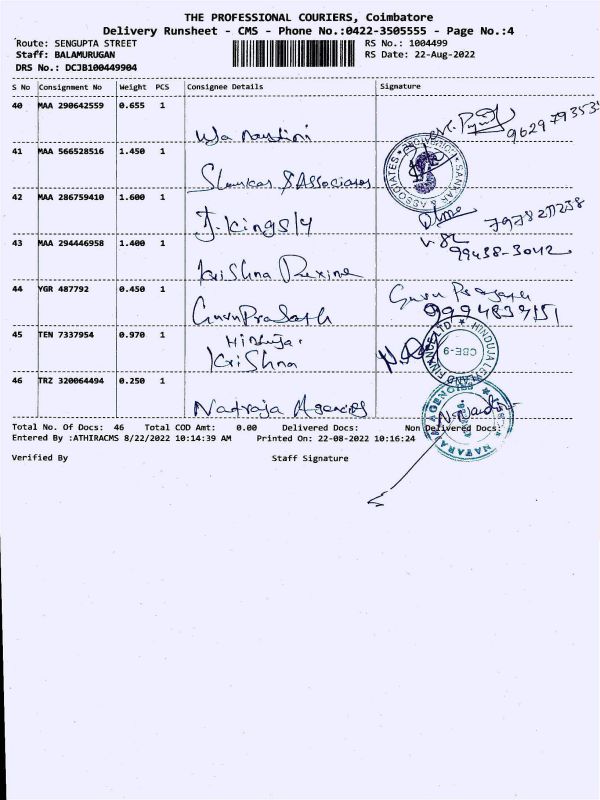 THE PROFESSIONAL COURIERS, Coimbatore
Delivery Runsheet - CMS - Phone No.:0422-3505555 - Page No.:4
Route: SENGUPTA STREET
RS No.: 1004499
Staff: BALAMURUGAN
RS Date: 22-Aug-2022
DRS No.: DCJB100449904
S No Consignment No Weight PCS Consignee Details Signature
40 MAA 290642559 0.655 1
9629793535
41 MAA 566528516 1.450 1
& Associates
SANKAR & ASSOCIATES
42 MAA 286759410 1.600 1
J. Kingsly
7978211238
43 MAA 294446958 1.400 1
Krishna Rexine
99438-3042
44 YGR 487792 0.450 1
GuruPrasath
9994839151
45 TEN 7337954 0.970 1
Hinduja
Krishna
CBE-9
46 TRZ 320064494 0.250 1
Natraja Agencies
Total No. Of Docs: 46 Total COD Amt: 0.00 Delivered Docs: Non Delivered Docs:
Entered By :ATHIRACMS 8/22/2022 10:14:39 AM Printed On: 22-08-2022 10:16:24
Verified By Staff Signature